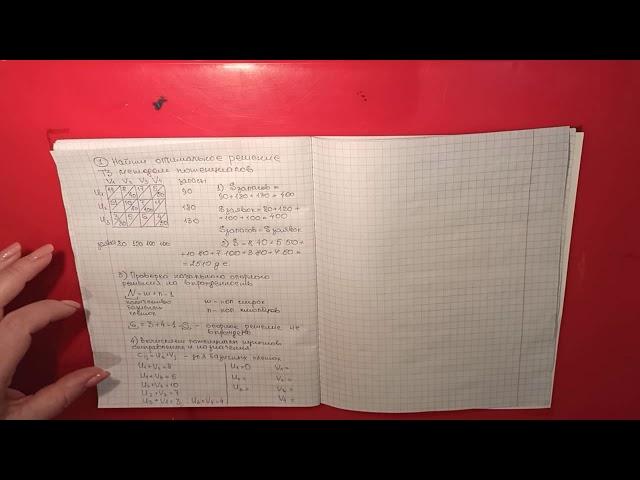 ① Найти оптимальное решение
ТЗ методом потенциалов
V₁ V₂ V₃ V₄ запасы
U₁ 90 1) Σзапасов =
90+180+130 = 400
U₂ 180 Σзаявок = 80+120+
+100+100 = 400
U₃ 130
Σзапасов = Σзаявок
заявки 80 120 100 100 2) Z = 8·40+5·50+
+10·80+7·100+3·80+4·50=
= 2510 д.е.
3) Проверка начального опорного
решения на вырожденность
N = m+n-1
количество базисных клеток
m – кол строк
n – кол столбцов
6 = 3+4-1 = 6 – опорное решение не
вырождено
4) Вычислим потенциалы пунктов
отправления и назначения
Cij = Ui + Vj – для базисных клеток
U₁+V₂=8 U₁=0 V₁=
U₁+V₄=5 U₂= V₂=
U₂+V₂=10 U₃= V₃=
U₂+V₃=7 V₄=
U₃+V₁=3 U₃+V₄=4